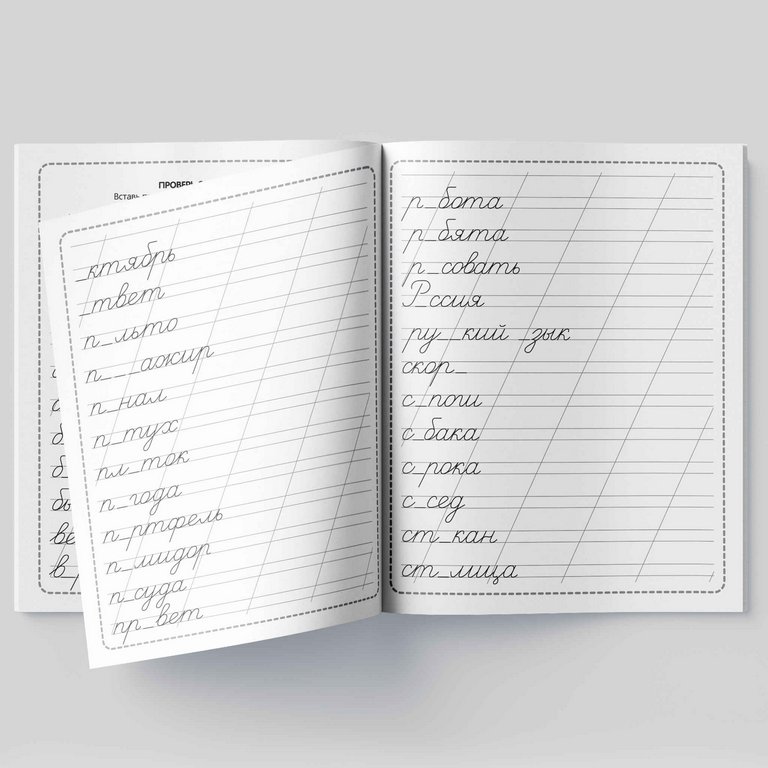 ПРОВЕРЬ
Вставь
_ктябрь
_твет
п_льто
п___ажир
п_нал
п_тух
пл_ток
п_года
п_ртфель
п_мидор
п_суда
пр_вет
р_бота
р_бята
р_совать
Р_ссия
ру__кий _зык
скор_
с_поги
с_бака
с_рока
с_сед
ст_кан
ст_лица